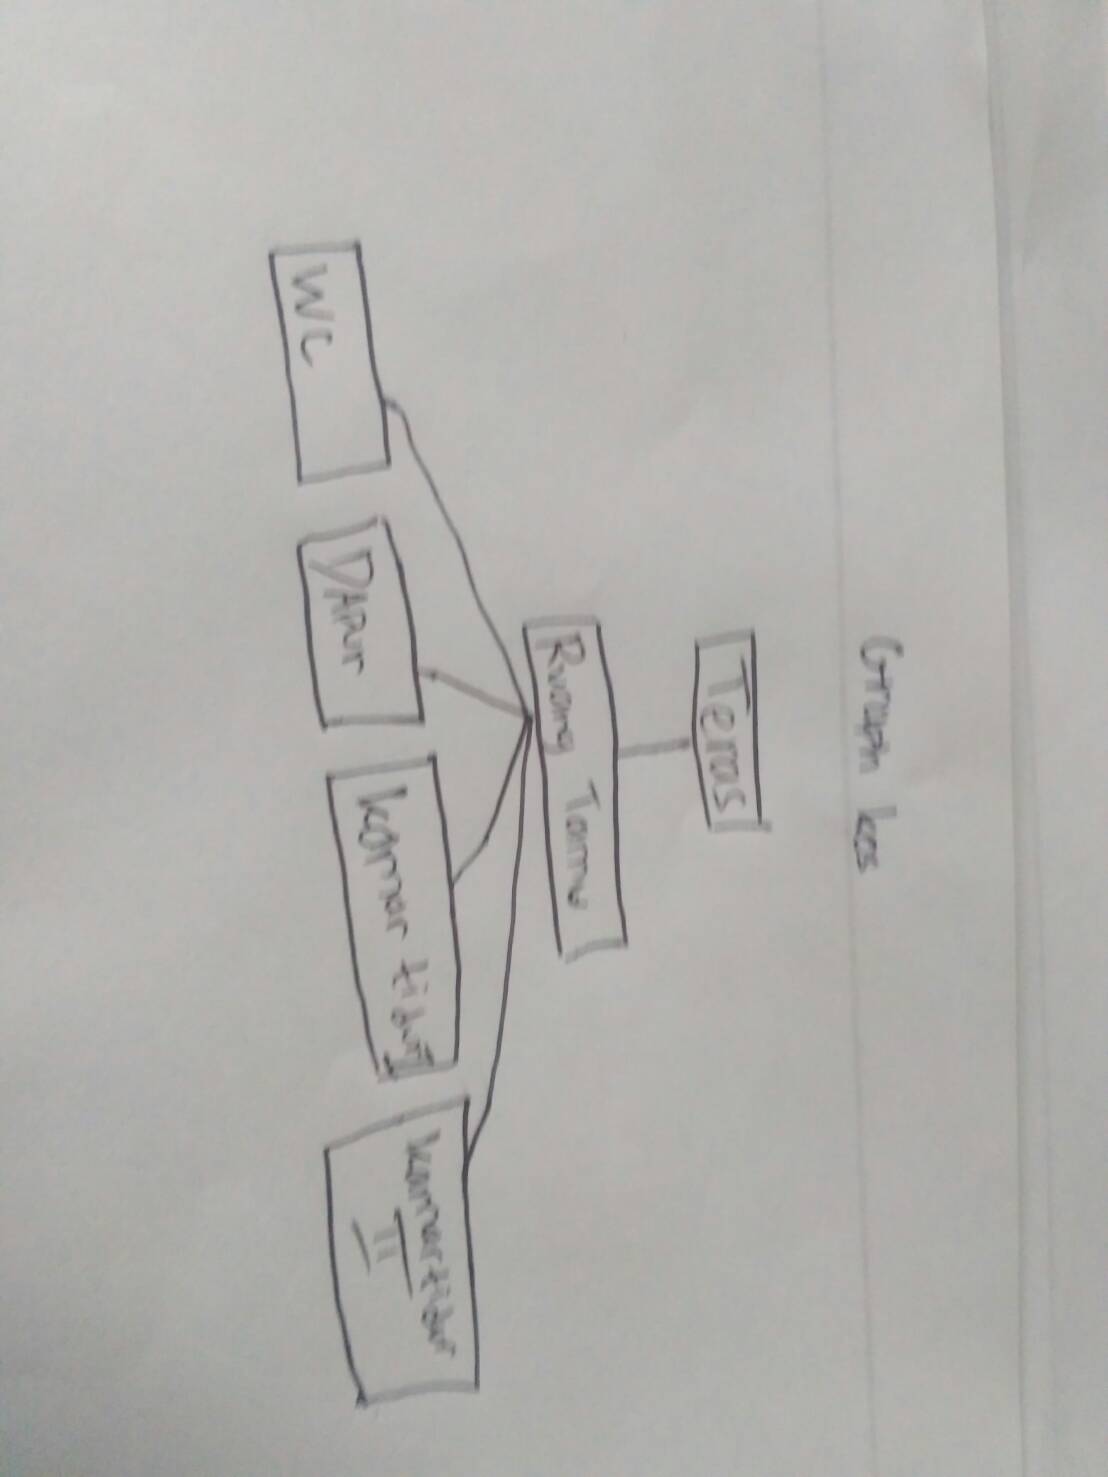 Graph kos
Teras
Ruang Tamu
WC
DAPur
kamar tidur I
kamar tidur
II